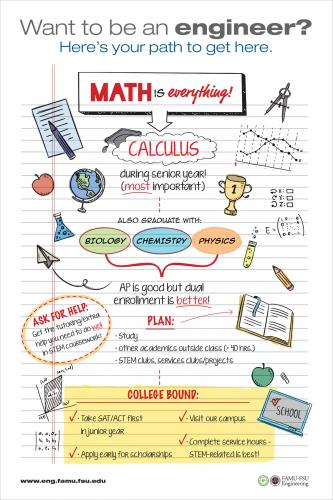 Want to be an engineer?
Here's your path to get here.
MATH IS everything!
CALCULUS
during senior year!
(most important)
ALSO GRADUATE WITH:
BIOLOGY CHEMISTRY PHYSICS
AP is good but dual
enrollment is better!
ASK FOR HELP:
Get the tutoring/extra
help you need to do well
in STEM coursework!
PLAN:
· Study
· other academics outside class (> 40 hrs.)
· STEM clubs, services clubs/projects
COLLEGE BOUND:
✓ · Take SAT/ACT first
in junior year
✓ · Apply early for scholarships
✓ · Visit our campus
✓ · Complete service hours -
STEM-related is best!
SCHOOL
1
www.eng.famu.fsu.edu
FAMU-FSU
Engineering